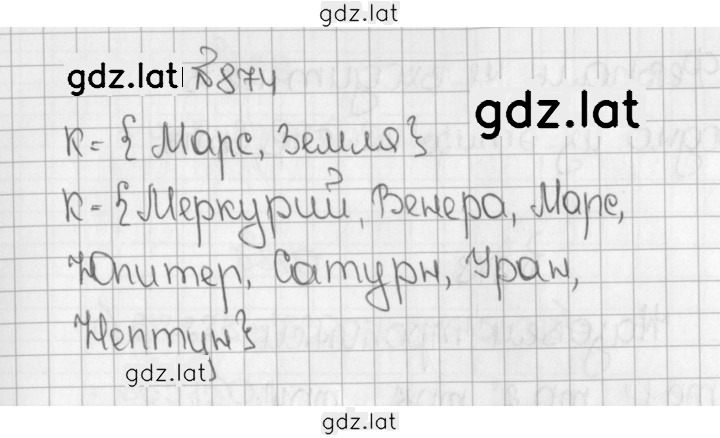 gdz.lat
gdz.lat №874
gdz.lat
К= { Марс, Земля}
К= {Меркурий, Венера, Марс,
Юпитер, Сатурн, Уран,
Нептун}
gdz.lat
gdz.lat